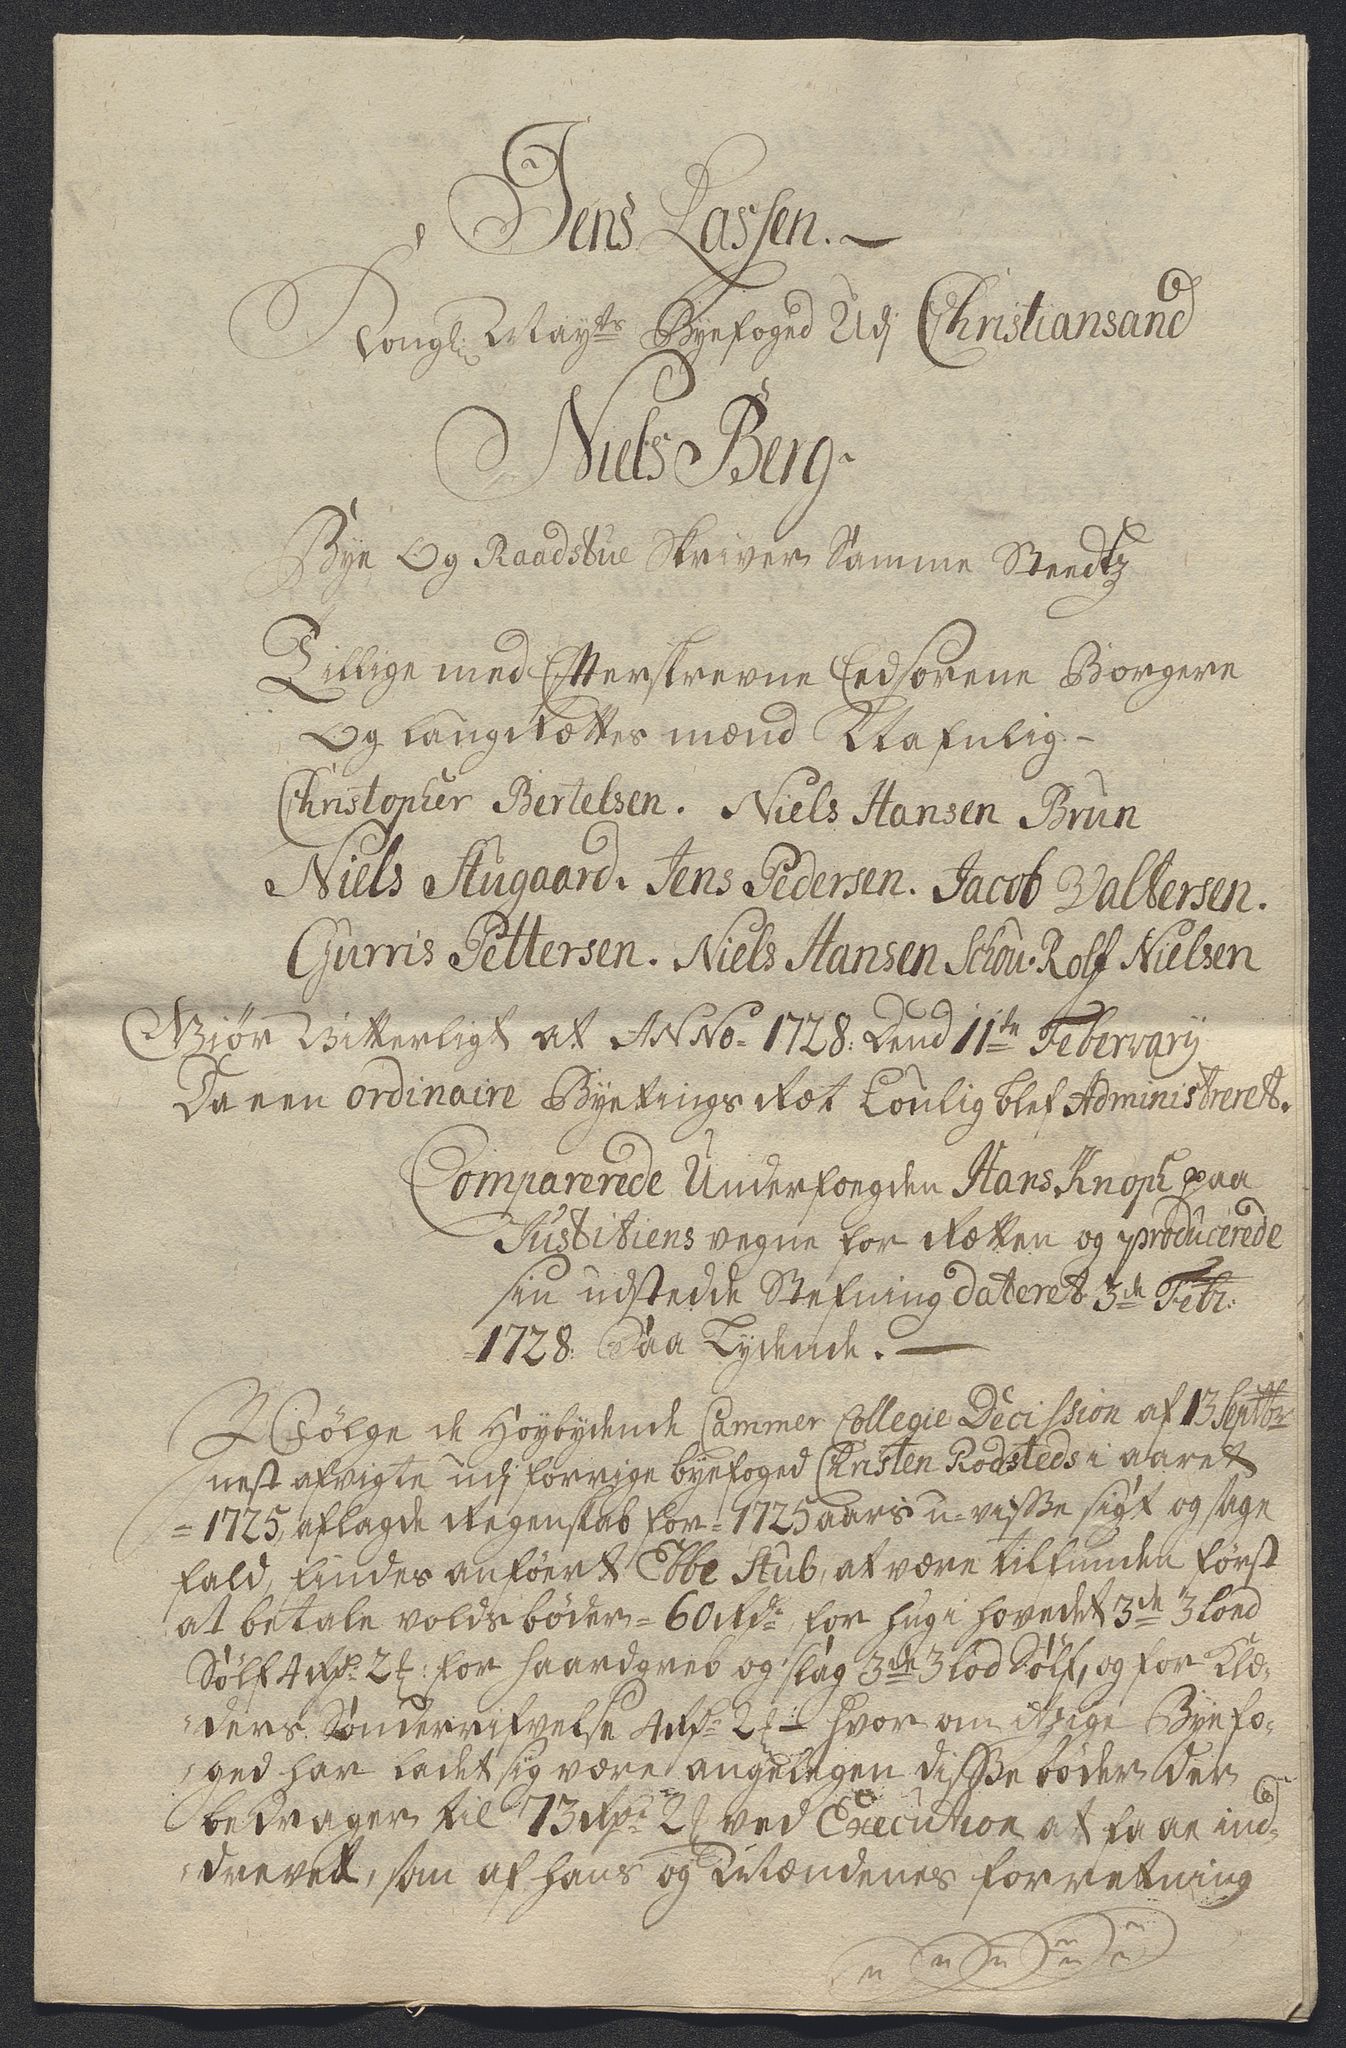 Jens Lassen.
Kongl: Mayts Byefoged Udj Christiansand
Niels Berg.
Bye Og Raadstue Skriver Samme Steedtz
Tillige med Efterskrevne Eedsorene Borgere
Og laugrættes mænd Nafnlig
Christopher Bertelsen. Niels Hansen Brun
Niels Augaard. Jens Pedersen. Jacob Valtersen.
Giurris Pettersen. Niels Hansen Schou. Rolf Nielsen
Giør Vitterligt at ANNo. 1728: Dend 11te Febervarÿ
Da een ordinaire Byetings Ræt Loulig blef Administreret.
Comparerede Underfoegden Hans Knoph paa
Justitiens vegne for Rætten og producerede
sin udstedde Stefning dateret 3de Febr:
1728: Saa Lydende.
I Følge de Høybydende Cammer Collegie Decission af 13 Septbr
nest afvigte udj forrige byefoged Christen Rodsteds i aaret
= 1725, aflagde Regenskab for = 1725 aars u-visse sigt og sage
fald, findes anføert Ebbe Stub, at være tilfunden først
at betale volds bøder = 60 Rdr. for hug i hovedet 3de 3 loed
Sølf 4 Rdr. 2 ʒ: for haardgreb og slag 3de 3 lod Sølf, og for Klæ-
ders Sønderrifvelse 4 Rdr. 2 ʒ hvor om itzige Byefo-
ged har ladet sig være angelegen disse bøder der
bedrager til 73 Rdr. 2 ʒ ved Execution at faae ind-
drevet, som af hans og Mændenes forretning